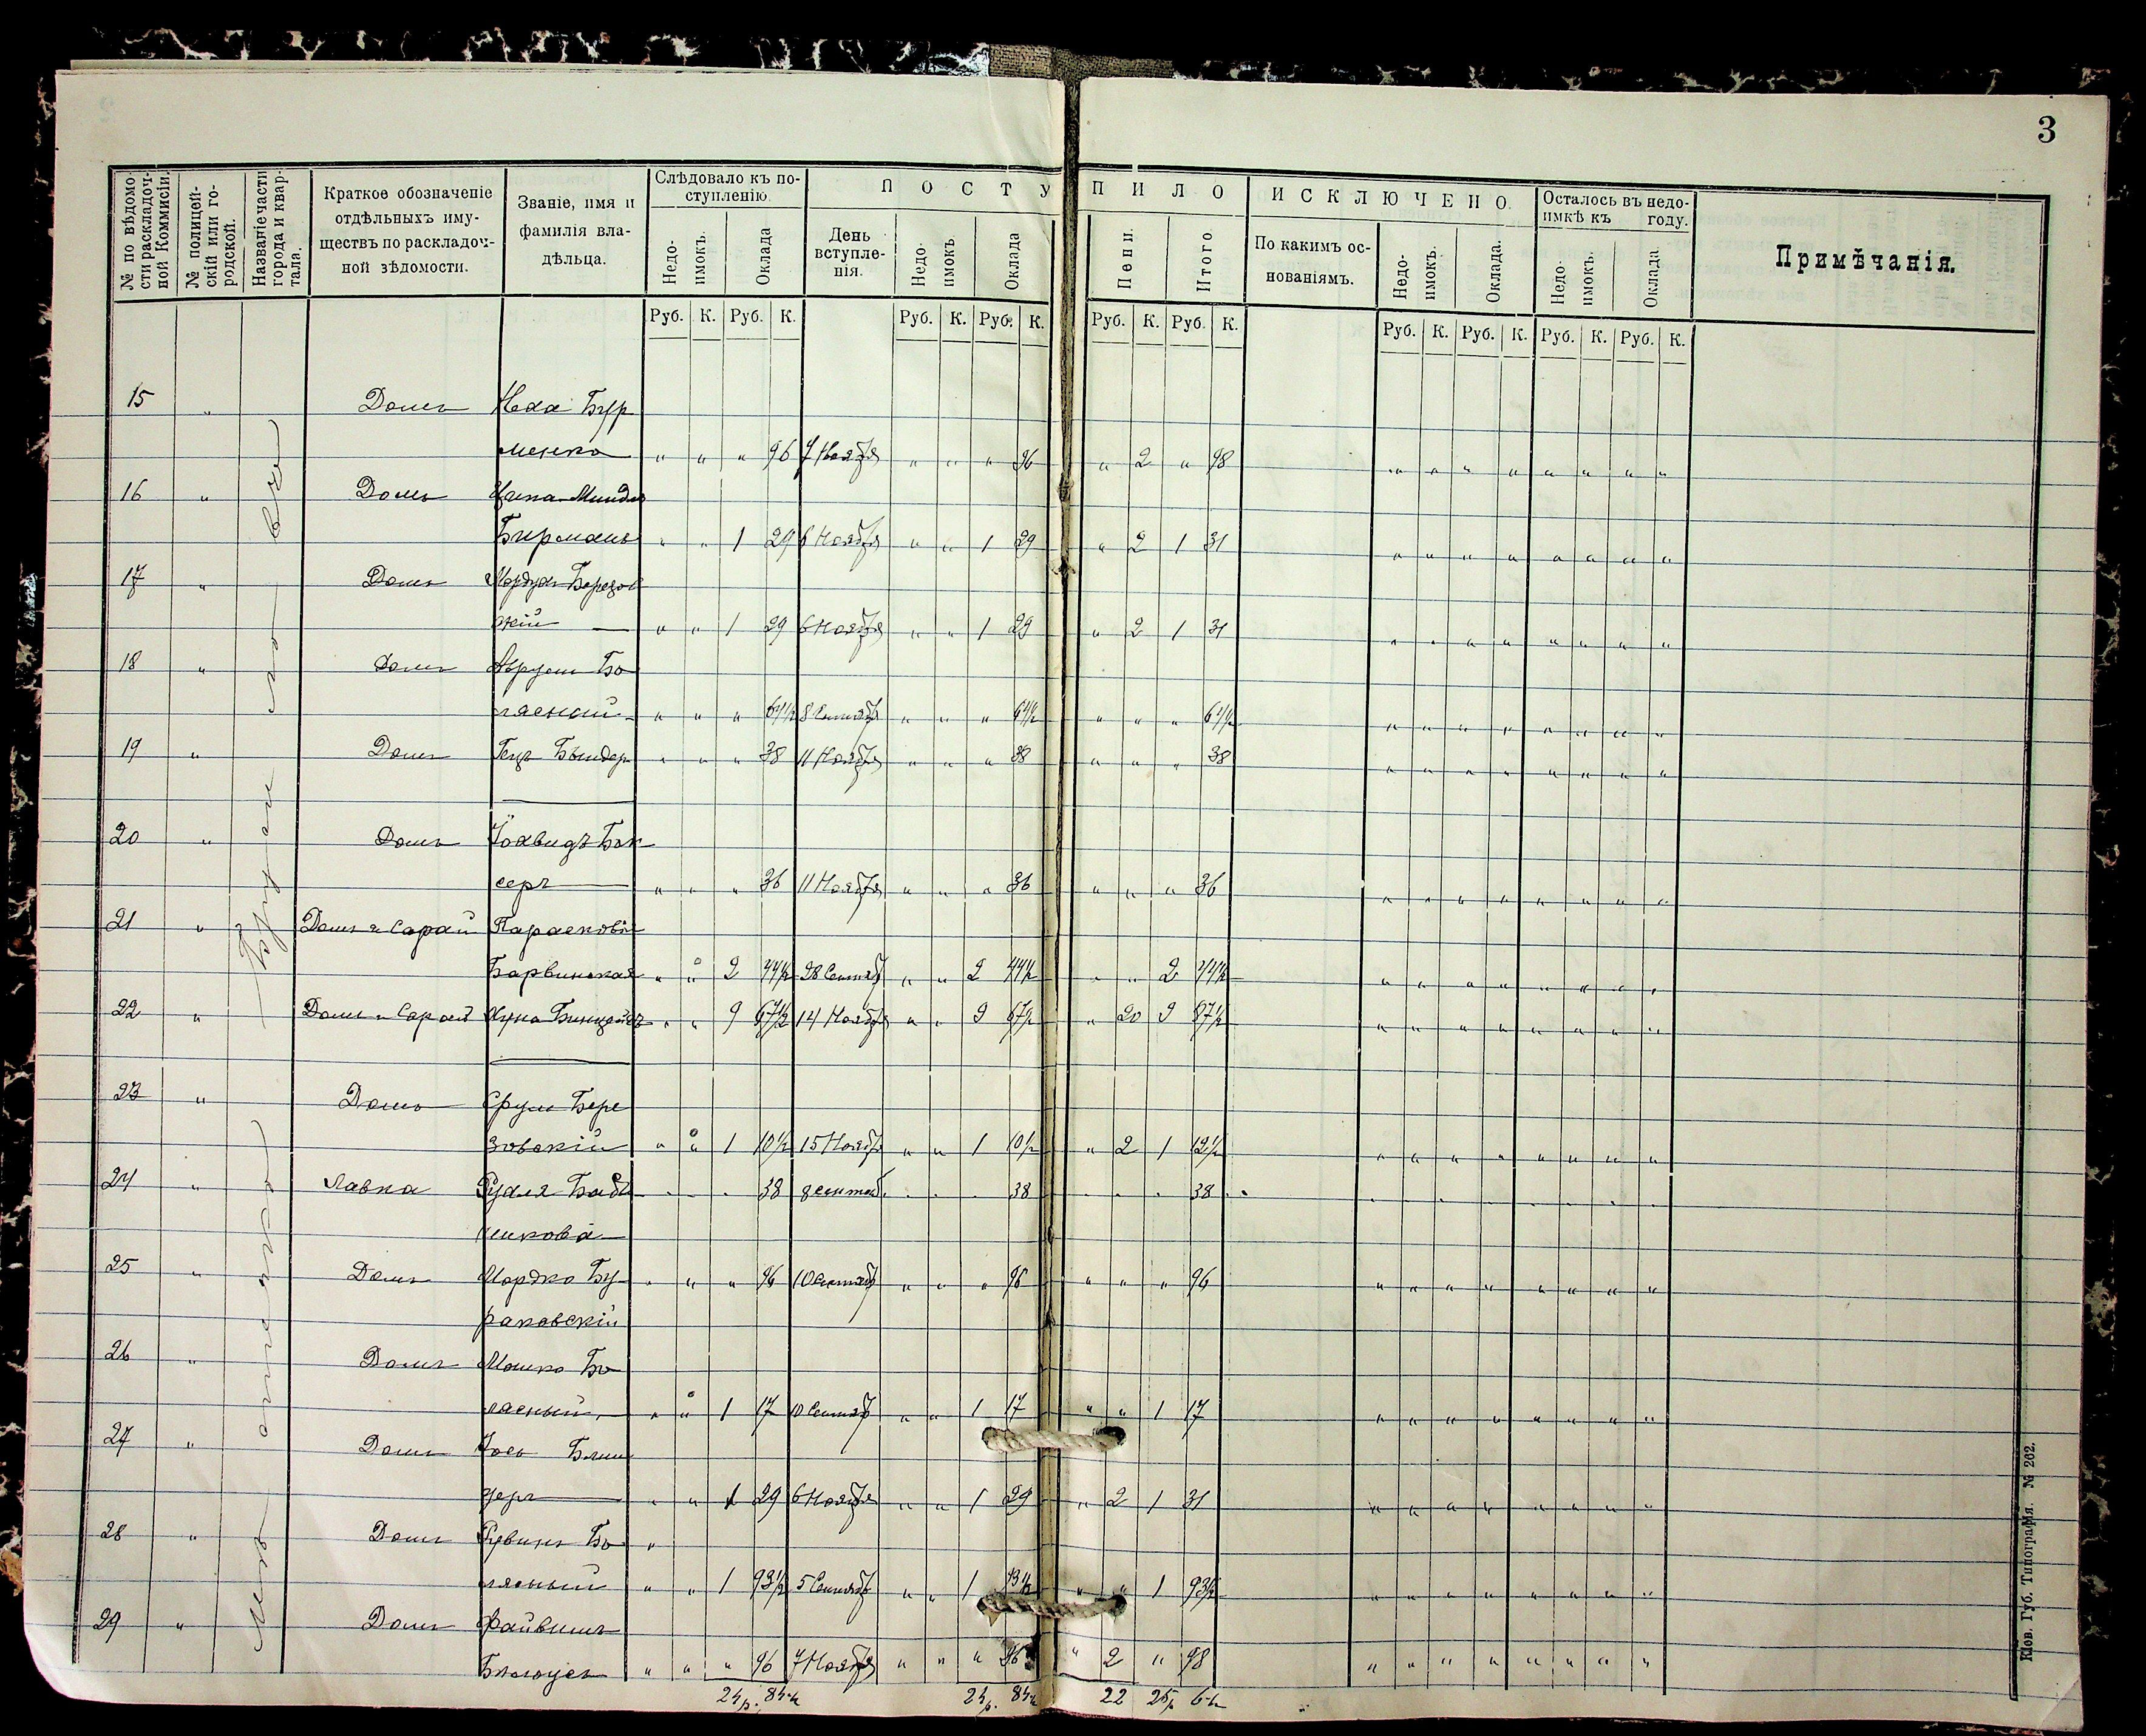 3
№ по вѣдомости раскладочной Коммисіи.
№ полицейскій или городской.
Названіе части города и квартала.
Краткое обозначеніе отдѣльныхъ имуществъ по раскладочной зѣдомости.
Званіе, имя и фамилія владѣльца.
Слѣдовало къ поступленію.
ПОСТУПИЛО
ИСКЛЮЧЕНО.
Осталось въ недоимкѣ къ году.
Примѣчанія.
Недоимокъ. Оклада День вступленія. Недоимокъ Оклада Пени. Итого По какимъ основаніямъ. Недоимокъ. Оклада. Недоимокъ. Оклада
Руб. К. Руб. К. Руб. К. Руб. К. Руб. К. Руб. К. Руб. К. Руб. К. Руб. К. Руб. К.
15 " Домъ Бур
менко " " " 96 7 Ноября " " " 96 " 2 " 98 " " " " " " " "
16 " Домъ
Бирманъ " " 1 29 6 Ноября " " 1 29 " 2 1 31 " " " " " " " "
17 " Домъ Мордух Березов
скій " " 1 29 6 Ноября " " 1 29 " 2 1 31 " " " " " " " "
18 " Домъ Аврум Бо
лясный " " " 64½ 8 Сентяб " " " 64½ " " " 64½ " " " " " " " "
19 " Домъ " " " 38 11 Ноября " " " 38 " " " 38 " " " " " " " "
20 " Домъ Іохвидъ Бок
серъ " " " 36 11 Ноября " " " 36 " " " 36 " " " " " " " "
21 " Домъ и Сарай Парасковія
Барвинская " " 2 44½ 28 Сентяб " " 2 44½ " " 2 44½ " " " " " " " "
22 " Домъ и Сарай " " 9 67½ 14 Ноября " " 9 67½ " 20 9 87½ " " " " " " " "
23 " Домъ Срул Бере
зовскій " " 1 10½ 15 Ноябр " " 1 10½ " 2 1 12½ " " " " " " " "
24 " Лавка 38 8 сентяб. 38 38
25 " Домъ Мордко Бу " " " 96 10 Сентяб " " " 96 " " " 96 " " " " " " " "
раковскій
26 " Домъ Мошко Бо
лясный " " 1 17 10 Сентяб " " 1 17 " " 1 17 " " " " " " " "
27 " Домъ Іось Блин
деръ " " 1 29 6 Ноября " " 1 29 " 2 1 31 " " " " " " " "
28 " Домъ Рувинъ Бо "
лясный " " 1 93½ 5 Сентяб " " 1 93½ " " 1 93½ " " " " " " " "
29 " Домъ Файвишъ
Билоусъ " " " 96 7 Ноября " " " 96 " 2 " 98 " " " " " " " "
24р. 84к 24р. 84к 22 25р 6к
Мѣстечко Брусиловъ
Кіев. Губ. Типографія. № 262.